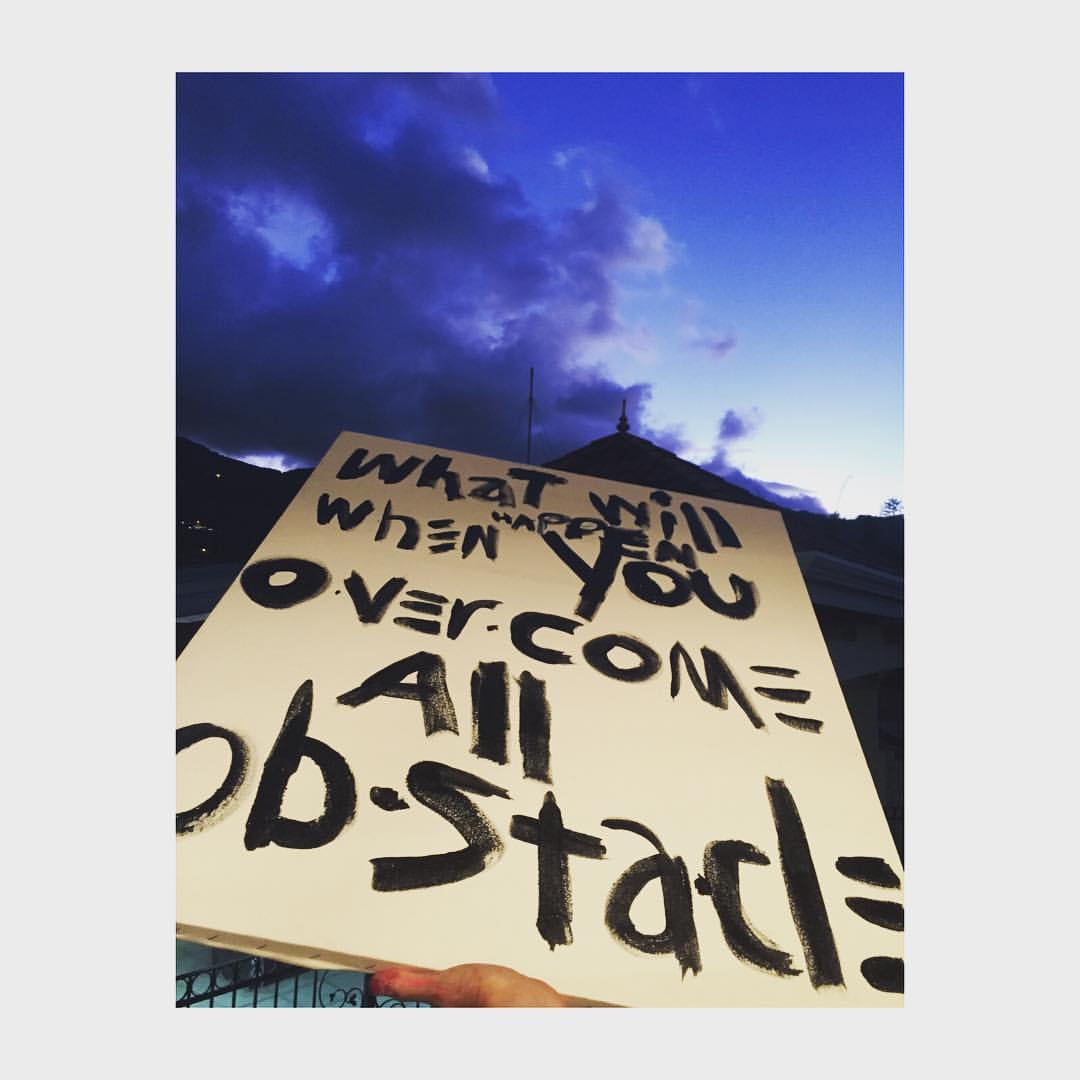 WhaT will
HAPPEN
WhEN YOU
O.VEr.COME
All
Ob.Sta.clE